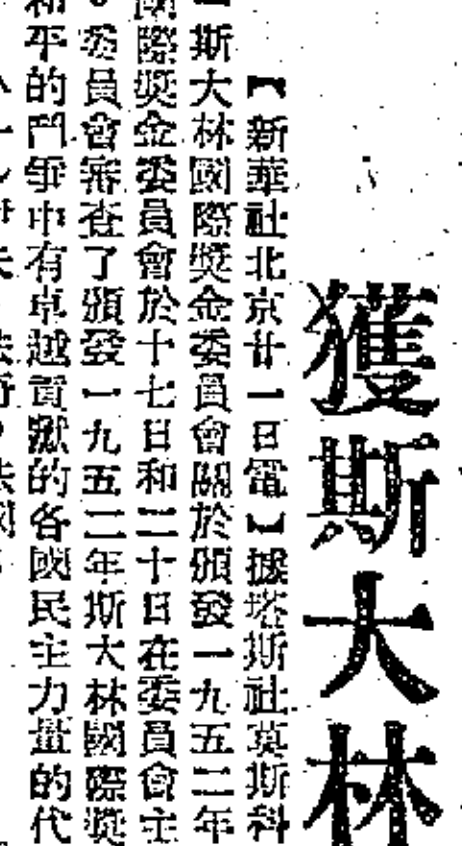 獲斯大林
【新華社北京廿一日電】據塔斯社莫斯科
斯大林國際獎金委員會關於頒發一九五二年
國際獎金委員會於十七日和二十日在委員會主
委員會審查了頒發一九五二年斯大林國際獎
和平的鬥爭中有卓越貢獻的各國民主力量的代